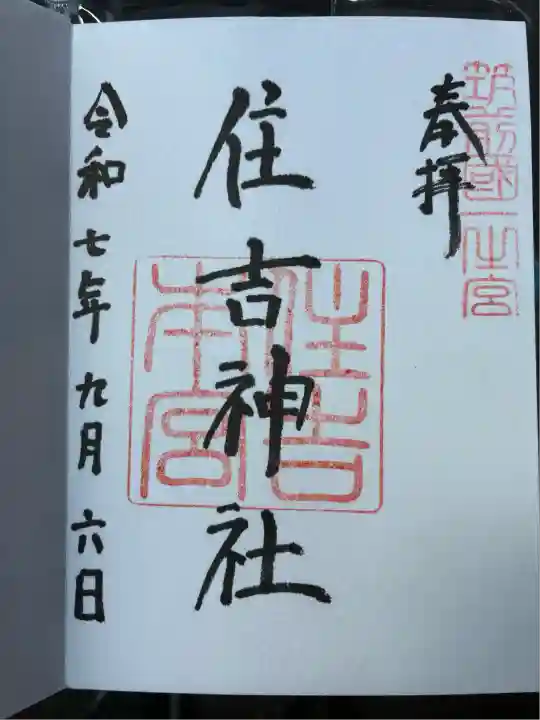 筑前國一之宮
奉拝
住吉神社
住吉本宮
令和七年九月六日